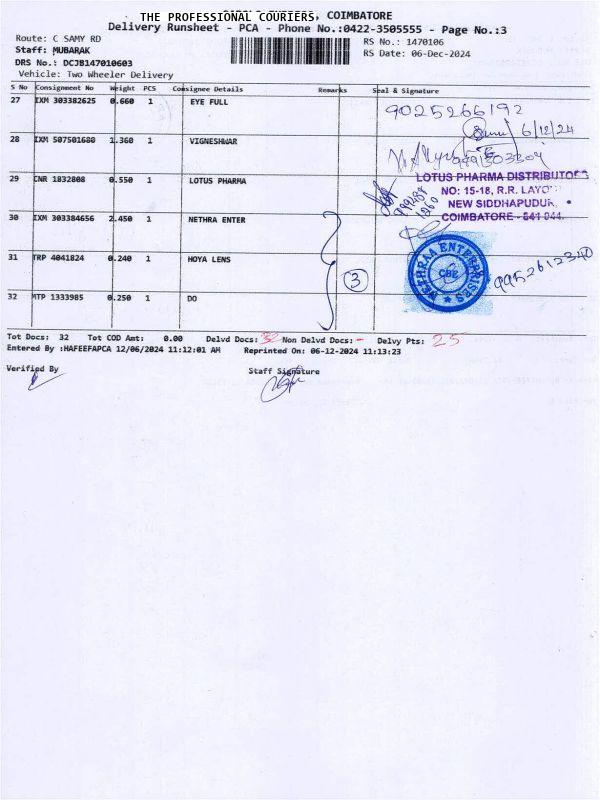 THE PROFESSIONAL COURIERS, COIMBATORE
Delivery Runsheet - PCA - Phone No.:0422-3505555 - Page No.:3
Route: C SAMY RD
RS No.: 1470106
Staff: MUBARAK
RS Date: 06-Dec-2024
DRS No.: DCJB147010603
Vehicle: Two Wheeler Delivery
S No Consignment No Weight PCS Consignee Details Remarks Seal & Signature
27 IXM 303382625 0.660 1 EYE FULL
9025266192
6/12/24
28 IXM 507501680 1.360 1 VIGNESHWAR
29 CNR 1832808 0.550 1 LOTUS PHARMA
LOTUS PHARMA DISTRIBUTORS
NO: 15-18, R.R. LAYO
NEW SIDDHAPUDUR,
COIMBATORE - 641 044.
30 IXM 303384656 2.450 1 NETHRA ENTER
31 TRP 4041824 0.240 1 HOYA LENS
3
NETHRAA ENTERPRISES
CBE
9952612340
32 MTP 1333985 0.250 1 DO
Tot Docs: 32 Tot COD Amt: 0.00 Delvd Docs: 32 Non Delvd Docs: - Delvy Pts: 25
Entered By :HAFEEFAPCA 12/06/2024 11:12:01 AM Reprinted On: 06-12-2024 11:13:23
Verified By
Staff Signature